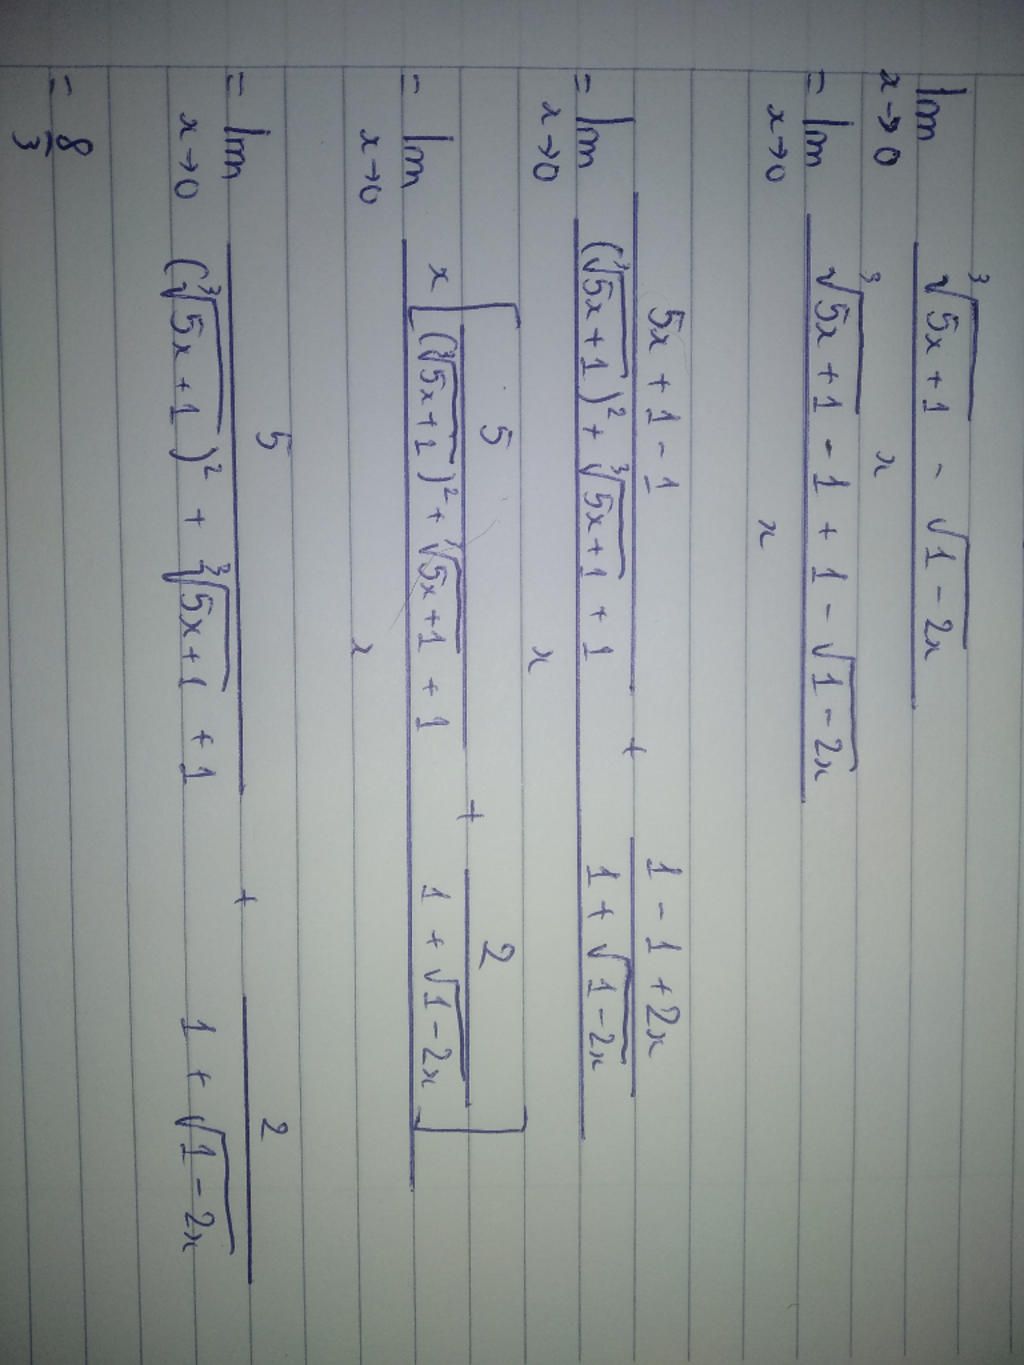 lim x→0 (∛(5x+1) - √(1-2x)) / x
= lim x→0 (∛(5x+1) - 1 + 1 - √(1-2x)) / x
= lim x→0 ((5x+1-1) / ((∛(5x+1))² + ∛(5x+1) + 1) + (1-1+2x) / (1+√(1-2x))) / x
= lim x→0 x[5 / ((∛(5x+1))² + ∛(5x+1) + 1) + 2 / (1+√(1-2x))] / x
= lim x→0 5 / ((∛(5x+1))² + ∛(5x+1) + 1) + 2 / (1+√(1-2x))
= 8/3